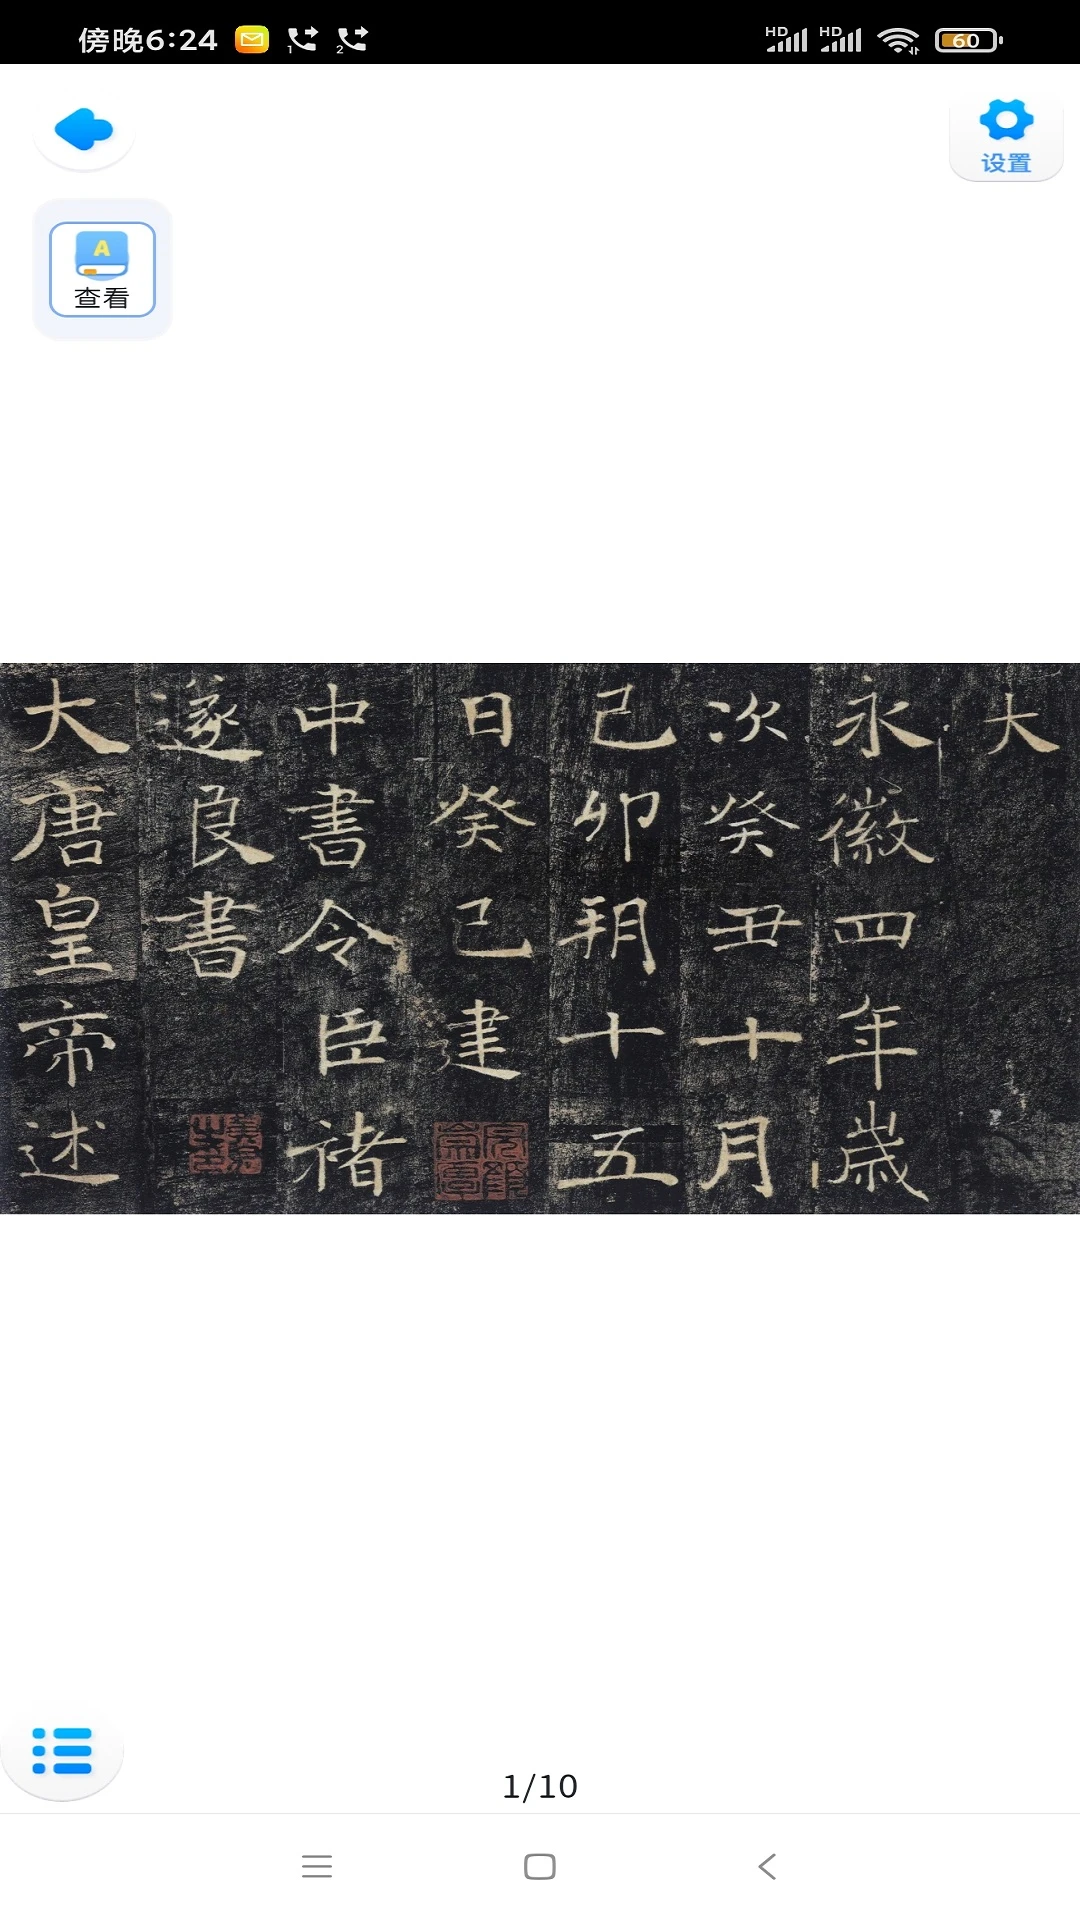 傍晚6:24
HD
HD
60
设置
A
查看
大
永徽四年歲
次癸丑十月
己卯朔十五
日癸巳建
中書令臣褚
遂良書
大唐皇帝述
1/10